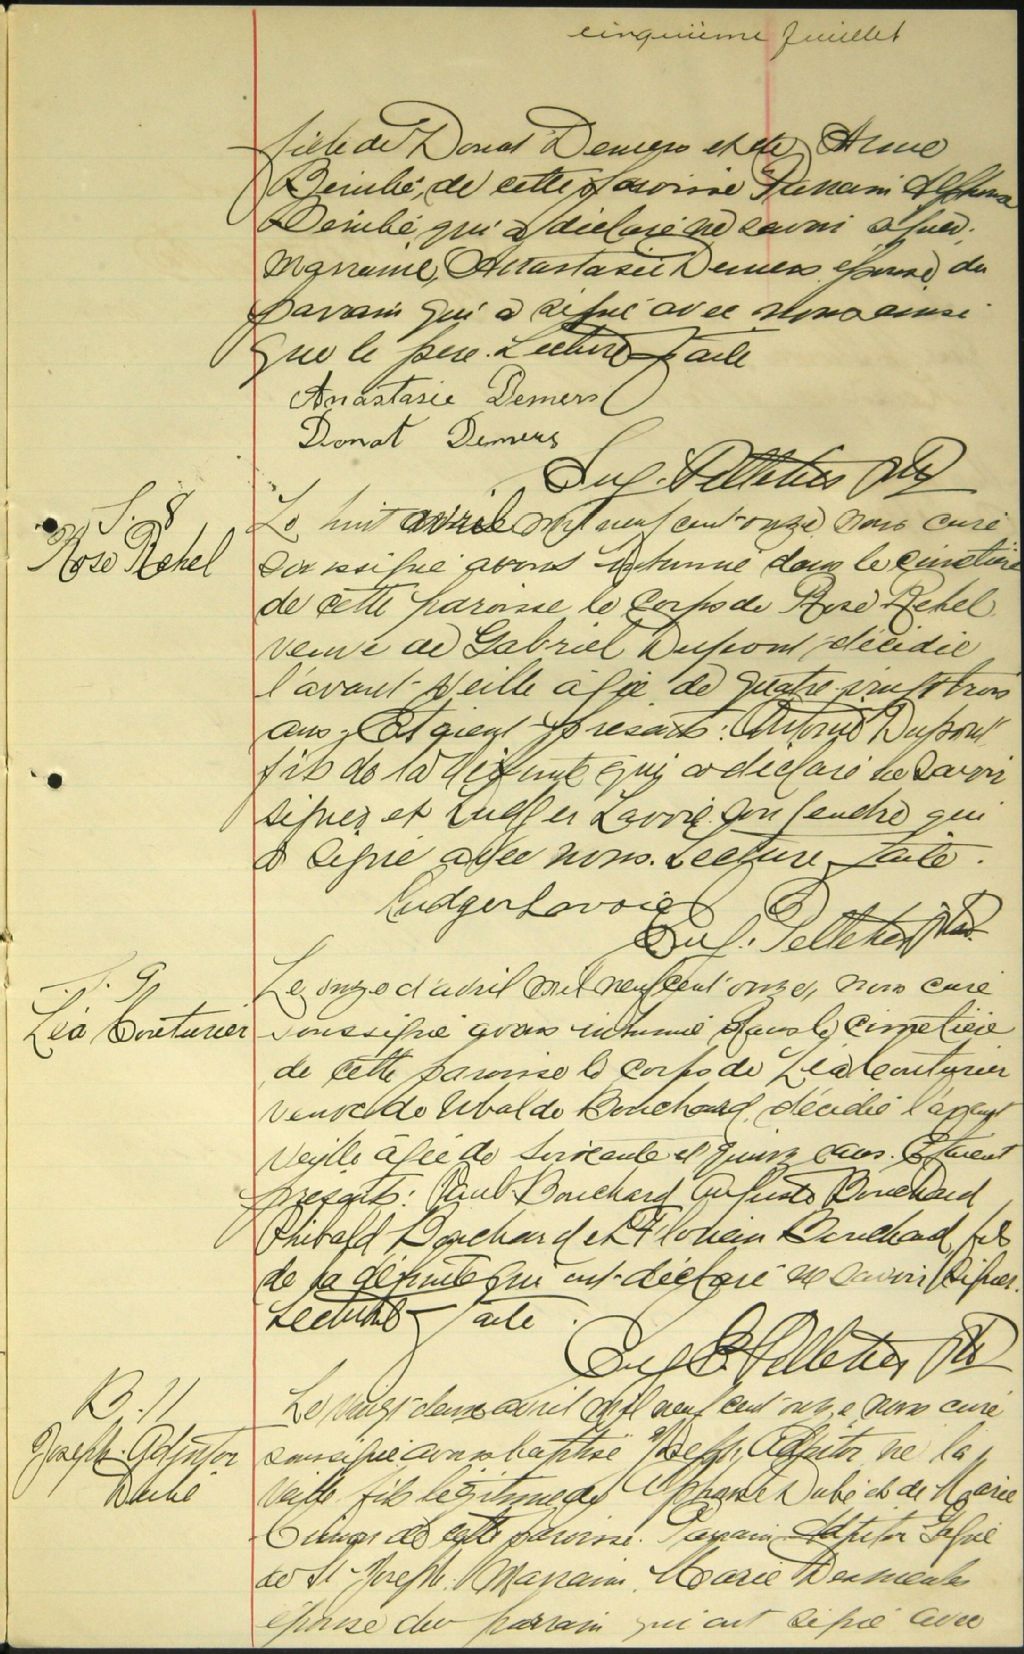 cinquième feuillet
fille de Donat Demers et de Anne
Bérubé, de cette paroisse Parrain
Bérubé, qui a déclaré ne savoir signer.
Marraine, Anastasie Demers épouse du
parrain qui a signé avec nous ainsi
que le père. Lecture faite
Anastasie Demers
Donat Demers
Eug. Pelletier Ptr
S. 8
Rose Rehel
Le huit avril mil neuf cent onze, nous curé
soussigné avons inhumé dans le cimetière
de cette paroisse le corps de Rose Rehel
veuve de Gabriel Dupont décédée
l'avant-veille âgée de quatre-vingt trois
ans. Etaient présents: Antoine Dupont
fils de la défunte qui a déclaré ne savoir
signer et Ludger Lavoie son gendre qui
a signé avec nous. Lecture faite.
Ludger Lavoie
Eug. Pelletier Ptr.
S. 9
Léa Couturier
Le onze d'avril mil neuf cent onze, nous curé
soussigné avons inhumé dans le cimetière
de cette paroisse le corps de Léa Couturier
veuve de Ubalde Bouchard, décédée l'avant
veille âgée de soixante et quinze ans. Etaient
présents: Paul Bouchard Auguste Bouchard
Thibald Bouchard et Florian Bouchard, fils
de la défunte qui ont déclaré ne savoir signer.
Lecture faite.
Eug. Pelletier Ptr
B. 11
Joseph
Dubé
Le vingt deux avril mil neuf cent onze nous curé
soussigné avons baptisé Joseph, né la
veille fils légitime de Alphonse Dubé et de Marie
de cette paroisse. Parrain
de St Joseph. Marraine Marie Desmeules
épouse du parrain qui ont signé avec